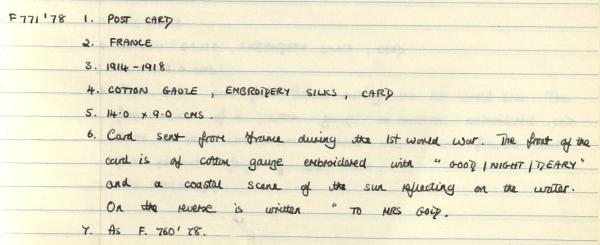 F771'78 1. POST CARD
2. FRANCE
3. 1914-1918
4. COTTON GAUZE, EMBROIDERY SILKS, CARD
5. 14.0 x 9.0 CMS.
6. Card sent from France during the 1st World War. The front of the
card is of cotton gauze embroidered with "GOOD/NIGHT/DEARY"
and a coastal scene of the sun reflecting on the water.
On the reverse is written "TO MRS GOLD.
7. As F. 760'78.